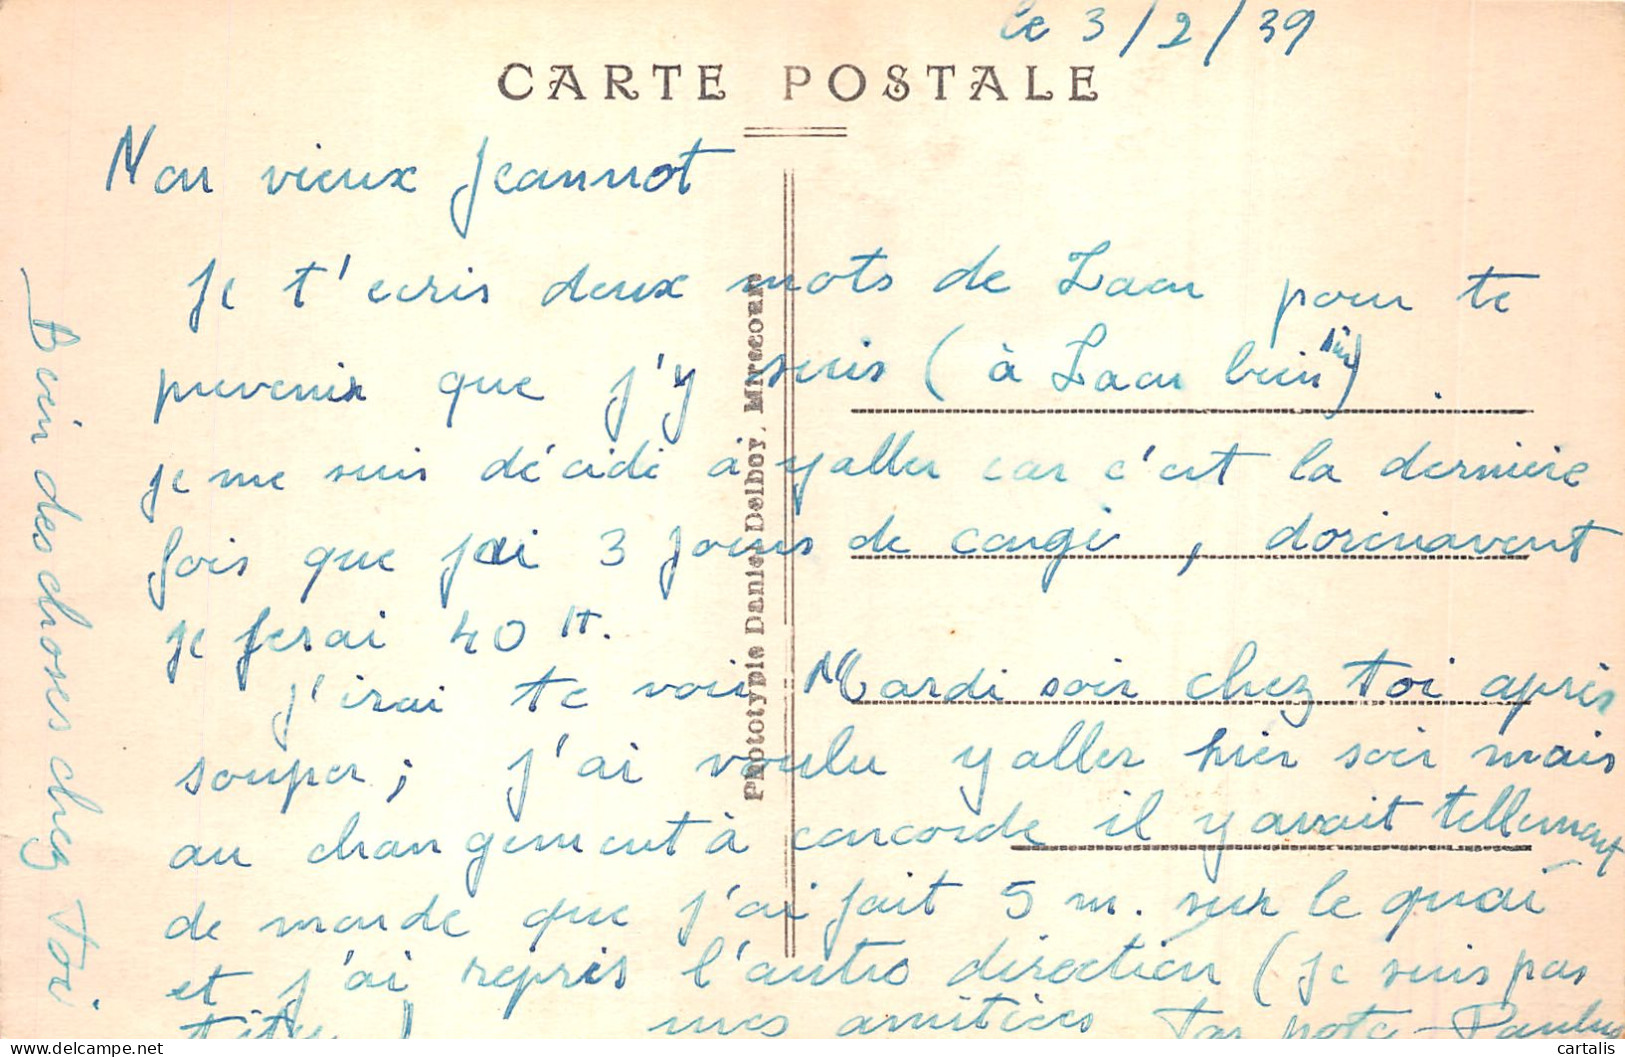 le 3/2/39
CARTE POSTALE
Mon vieux Jeannot
Je t'ecris deux mots de Laon pour te
prevenir que j'y suis (à Laon bien sûr) .
je me suis décidé à y aller car c'est la dernière
fois que j'ai 3 jours de congé, dorenavent
je ferai 40 H.
J'irai te voir Mardi soir chez toi après
souper; j'ai voulu y aller hier soir mais
au changement à concorde il y avait tellement
de monde que j'ai fait 5 m. sur le quai
et j'ai repris l'autre direction (je suis pas
têtu) mes amitiées Ton pote - Paulus
Bien des choses chez Toi
Phototypie Daniel Delboy, Mirecourt
cartalis